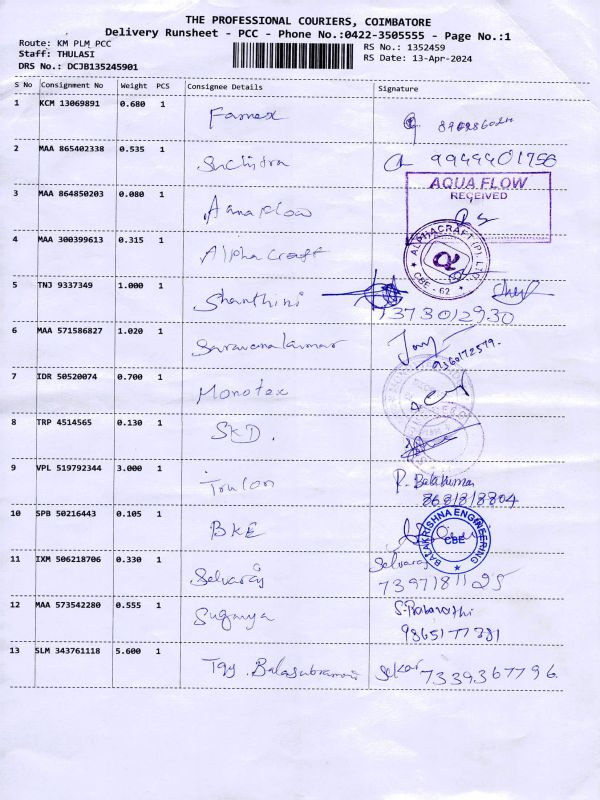 THE PROFESSIONAL COURIERS, COIMBATORE
Delivery Runsheet - PCC - Phone No.:0422-3505555 - Page No.:1
Route: KM PLM_PCC
Staff: THULASI
DRS No.: DCJB135245901
RS No.: 1352459
RS Date: 13-Apr-2024
S No Consignment No Weight PCS Consignee Details Signature
1 KCM 13069891 0.680 1 Famex
2 MAA 865402338 0.535 1 Suchitra 9944401756
3 MAA 864850203 0.080 1 Aquaflow
AQUA FLOW
RECEIVED
4 MAA 300399613 0.315 1 Alpha Craft
ALPHACRAFT (P). LTD.
CBE - 62
5 TNJ 9337349 1.000 1 Shanthini
7373012930
6 MAA 571586827 1.020 1 Saravanakumar
9360172579.
7 IDR 50520074 0.700 1 Monotex
8 TRP 4514565 0.130 1 SKD.
9 VPL 519792344 3.000 1 P. Balakumar
8681818804
10 SPB 50216443 0.105 1 BKE
BALAKRISHNA ENGINEERING
CBE
11 IXM 506218706 0.330 1 Selvaraj Selvaraj
7397181125
12 MAA 573542280 0.555 1 Suganya
9865177381
13 SLM 343761118 5.600 1 Balasubramani Sekar 7339367796